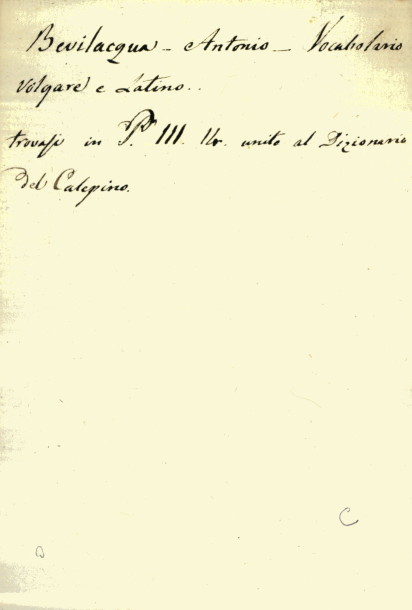 Bevilacqua - Antonio - Vocabolario
volgare e Latino..
trovasi in P. III. Nr. unito al Dizionario
del Calepino.
C